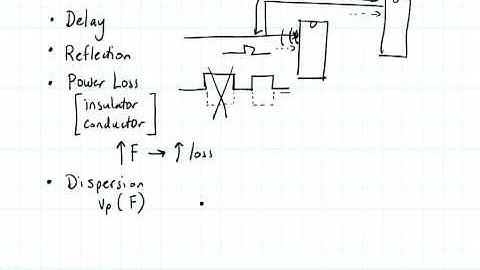 • Delay
• Reflection
• Power Loss
[insulator
conductor]
↑F → ↑ loss
• Dispersion
Vp(F)